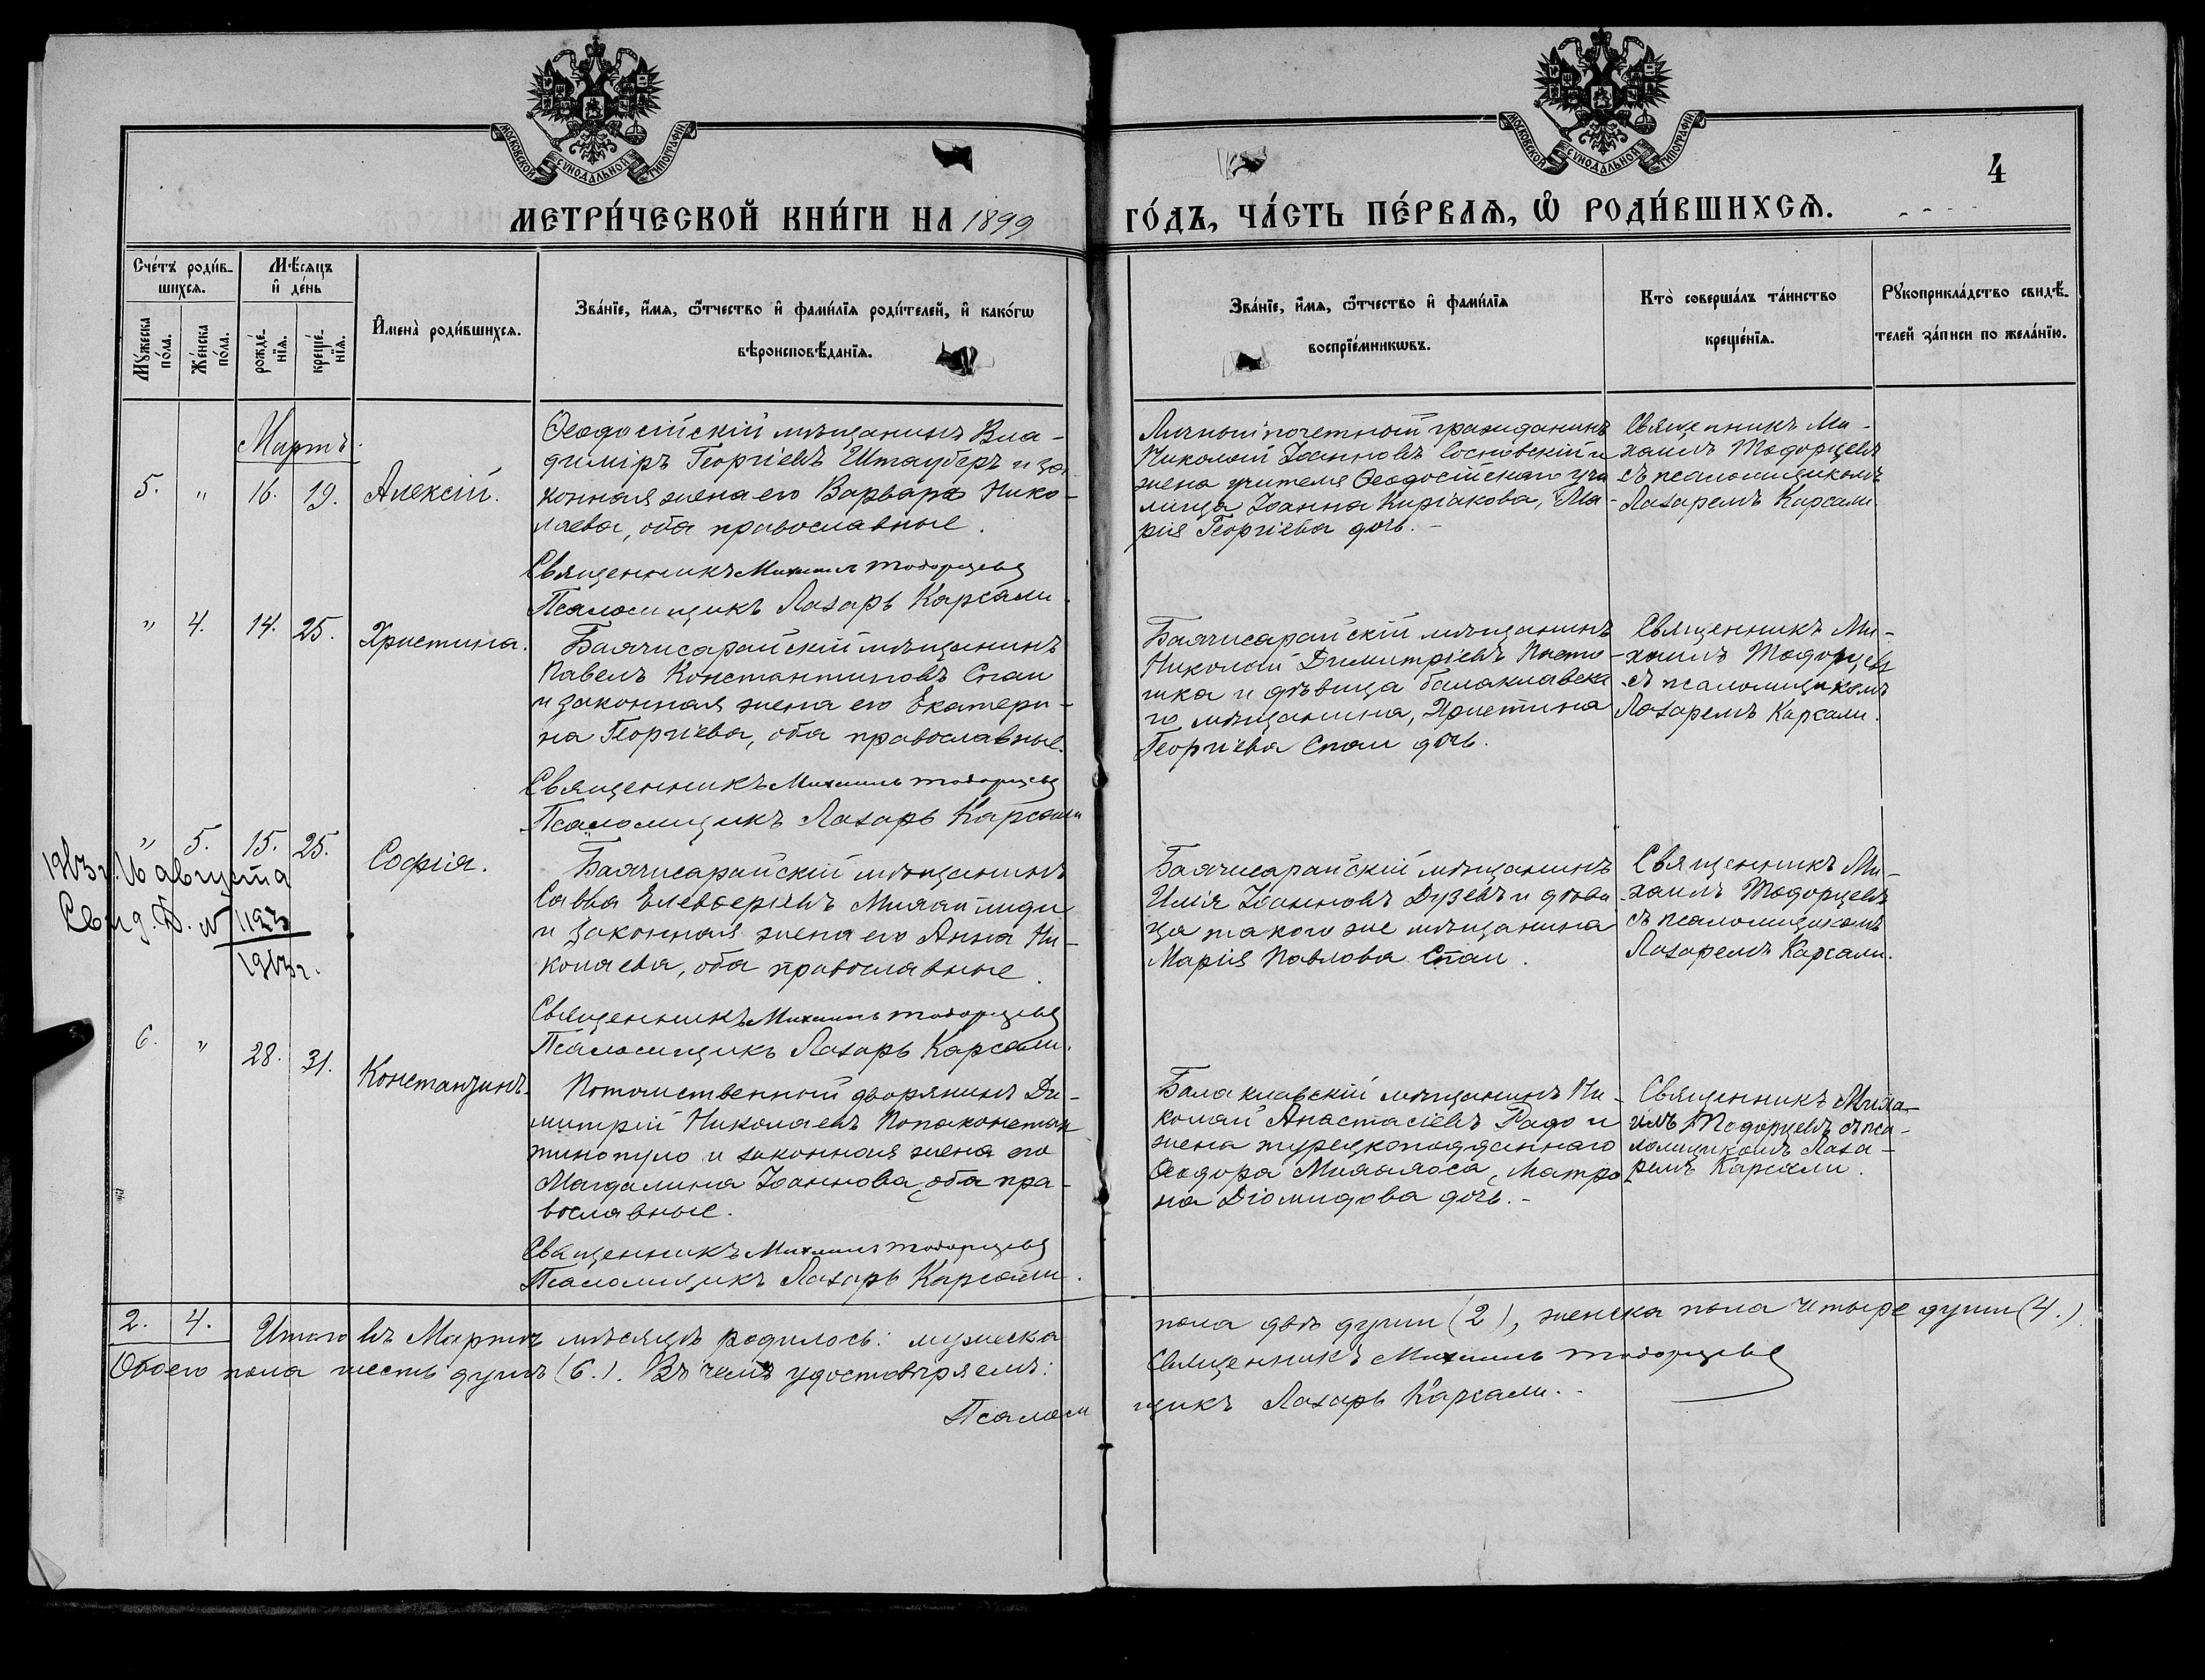 МОСКОВСКОЙ СУНОДАЛЬНОЙ ТИПОГРАФІИ
МОСКОВСКОЙ СУНОДАЛЬНОЙ ТИПОГРАФІИ
4
МЕТРИ́ЧЕСКОЙ КНИ́ГИ НА 1899
ГО́ДЪ, ЧА́СТЬ ПЕ́РВАѦ, Ѡ҆ РОДИ́ВШИХСѦ.
Сче́тъ роди́в-
шихсѧ.
Мѣ́сѧцъ
и҆ де́нь
Мꙋ́жеска
по́ла.
Же́нска
по́ла.
рожде́-
нїѧ.
креще́-
нїѧ.
И҆мена̀ роди́вшихсѧ.
Зва́нїе, и҆́мѧ, ѻ҆́тчество и҆ фами́лїѧ роди́телей, и҆ како́гѡ
вѣроисповѣ́данїѧ.
Зва́нїе, и҆́мѧ, ѻ҆́тчество и҆ фами́лїѧ
воспрїе́мникѡвъ.
Кто̀ соверша́лъ та́инство
креще́нїѧ.
Рꙋкоприкла́дство свидѣ́-
телей за́писи по жела́нїю.
Мартъ.
5. " 16. 19. Алексій.
Ѳеодосійскій мѣщанинъ Вла-
диміръ Георгіевъ Штауберъ и за-
конная жена его Варвара Нико-
лаева, оба православные.
Священникъ Михаилъ Тодорцевъ
Псаломщикъ Лазарь Карсали.
Личный почетный гражданинъ
Николай Іоанновъ Сосновскій и
жена учителя Ѳеодосійскаго учи
лища Іоанна Киріакова, Ма-
рія Георгіева дочь.-
Священникъ Ми-
хаилъ Тодорцевъ
съ псаломщикомъ
Лазаремъ Карсали.
" 4. 14. 25. Христина.
Бахчисарайскій мѣщанинъ
Павелъ Константиновъ Спаи
и законная жена его Екатери-
на Георгіева, оба православные.
Священникъ Михаилъ Тодорцевъ
Псаломщикъ Лазарь Карсали
Бахчисарайскій мѣщанинъ
Николай Димитріевъ
и дѣвица балаклавска
го мѣщанина, Христина
Георгіева Спаи дочь.
Священникъ Ми-
хаилъ Тодорцевъ
съ псаломщикомъ
Лазаремъ Карсали.
" 5. 15. 25. Софія.
1913 г. 16 августа
Свид. Д. №
1913 г.
Бахчисарайскій мѣщанинъ
Савва Елевѳеріевъ
и законная жена его Анна Ни-
колаева, оба православные.
Священникъ Михаилъ Тодорцевъ
Псаломщикъ Лазарь Карсали.
Бахчисарайскій мѣщанинъ
Илія Іоанновъ Дузевъ и дѣви
ца такого же мѣщанина
Марія Павлова Спаи.
Священникъ Ми-
хаилъ Тодорцевъ
съ псаломщикомъ
Лазаремъ Карсали.
6. " 28. 31. Константинъ.
Потомственный дворянинъ Ди-
митрій Николаевъ Папаконстан
тинопуло и законная жена его
Магдалина Іоаннова, оба пра-
вославные.
Священникъ Михаилъ Тодорцевъ
Псаломщикъ Лазарь Карсали.
Балаклавскій мѣщанинъ Ни-
колай Анастасіевъ Радо и
жена турецкоподданнаго
Ѳеодора Михалоса, Матро
на Діомидова дочь.-
Священникъ Миха-
илъ Тодорцевъ съ пса-
ломщикомъ Лаза-
ремъ Карсали.
2. 4. Итого въ Мартѣ мѣсяцѣ родилось: мужеска
пола двѣ души (2), женска пола четыре души (4.)
Обоего пола шесть душъ (6.). Въ чемъ удостовѣряемъ:
Священникъ Михаилъ Тодорцевъ
Псалом
щикъ Лазарь Карсали.-